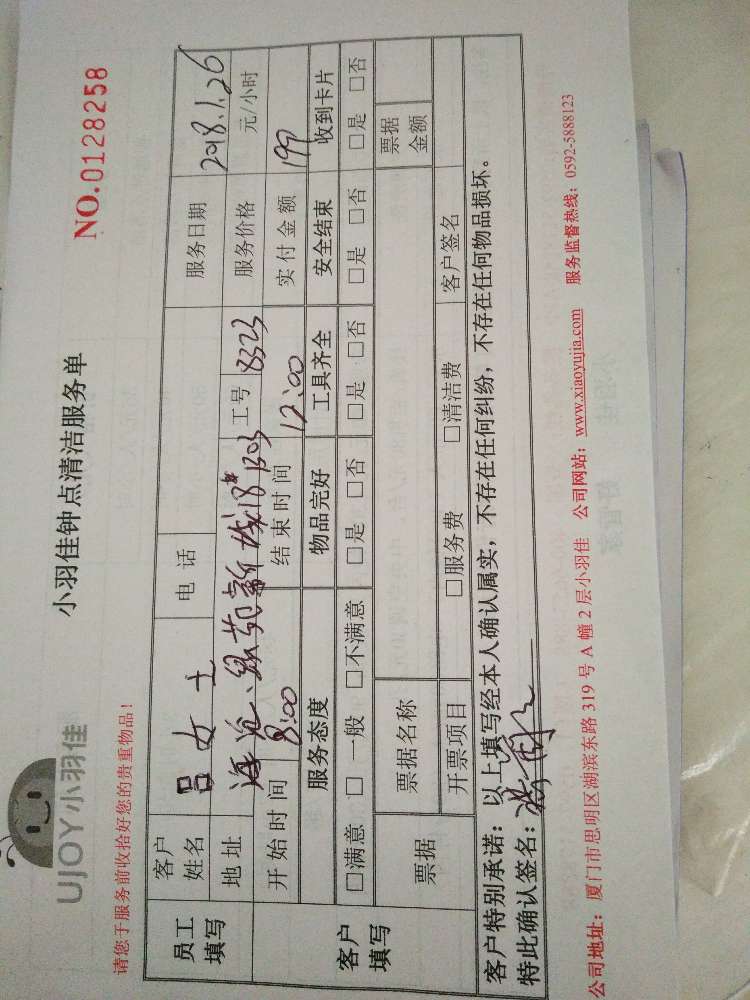 UJOY小羽佳
小羽佳钟点清洁服务单
NO.0128258
请您于服务前收拾好您的贵重物品！
员工填写
客户姓名 吕女士 电话 服务日期 2018.1.26
地址 海沧 新城18# 1303 工号 8323 服务价格 元/小时
客户填写
开始时间 8:00 结束时间 12:00 实付金额 197
服务态度 物品完好 工具齐全 安全结束 收到卡片
□满意 □一般 □不满意 □是 □否 □是 □否 □是 □否 □是 □否
票据 票据名称 票据金额
开票项目 □服务费 □清洁费 客户签名
客户特别承诺：以上填写经本人确认属实，不存在任何纠纷，不存在任何物品损坏。
特此确认签名：
公司地址：厦门市思明区湖滨东路 319 号 A 幢 2 层小羽佳 公司网站：www.xiaoyujia.com 服务监督热线：0592-5888123